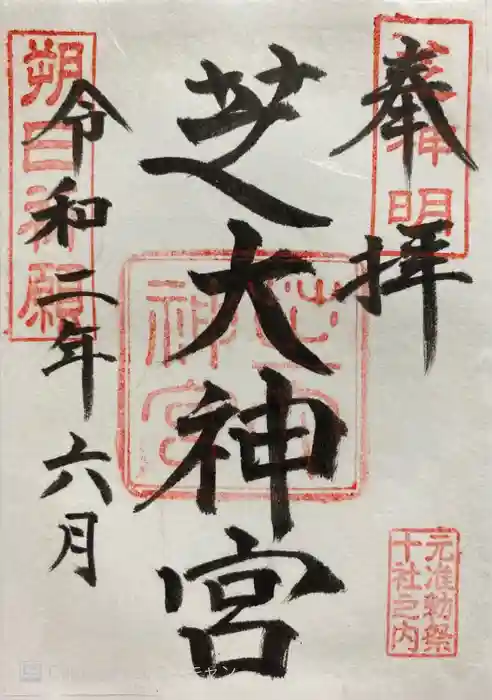 奉拝
芝大神宮
令和二年六月
朔日祈願
元准勅祭
十社之内